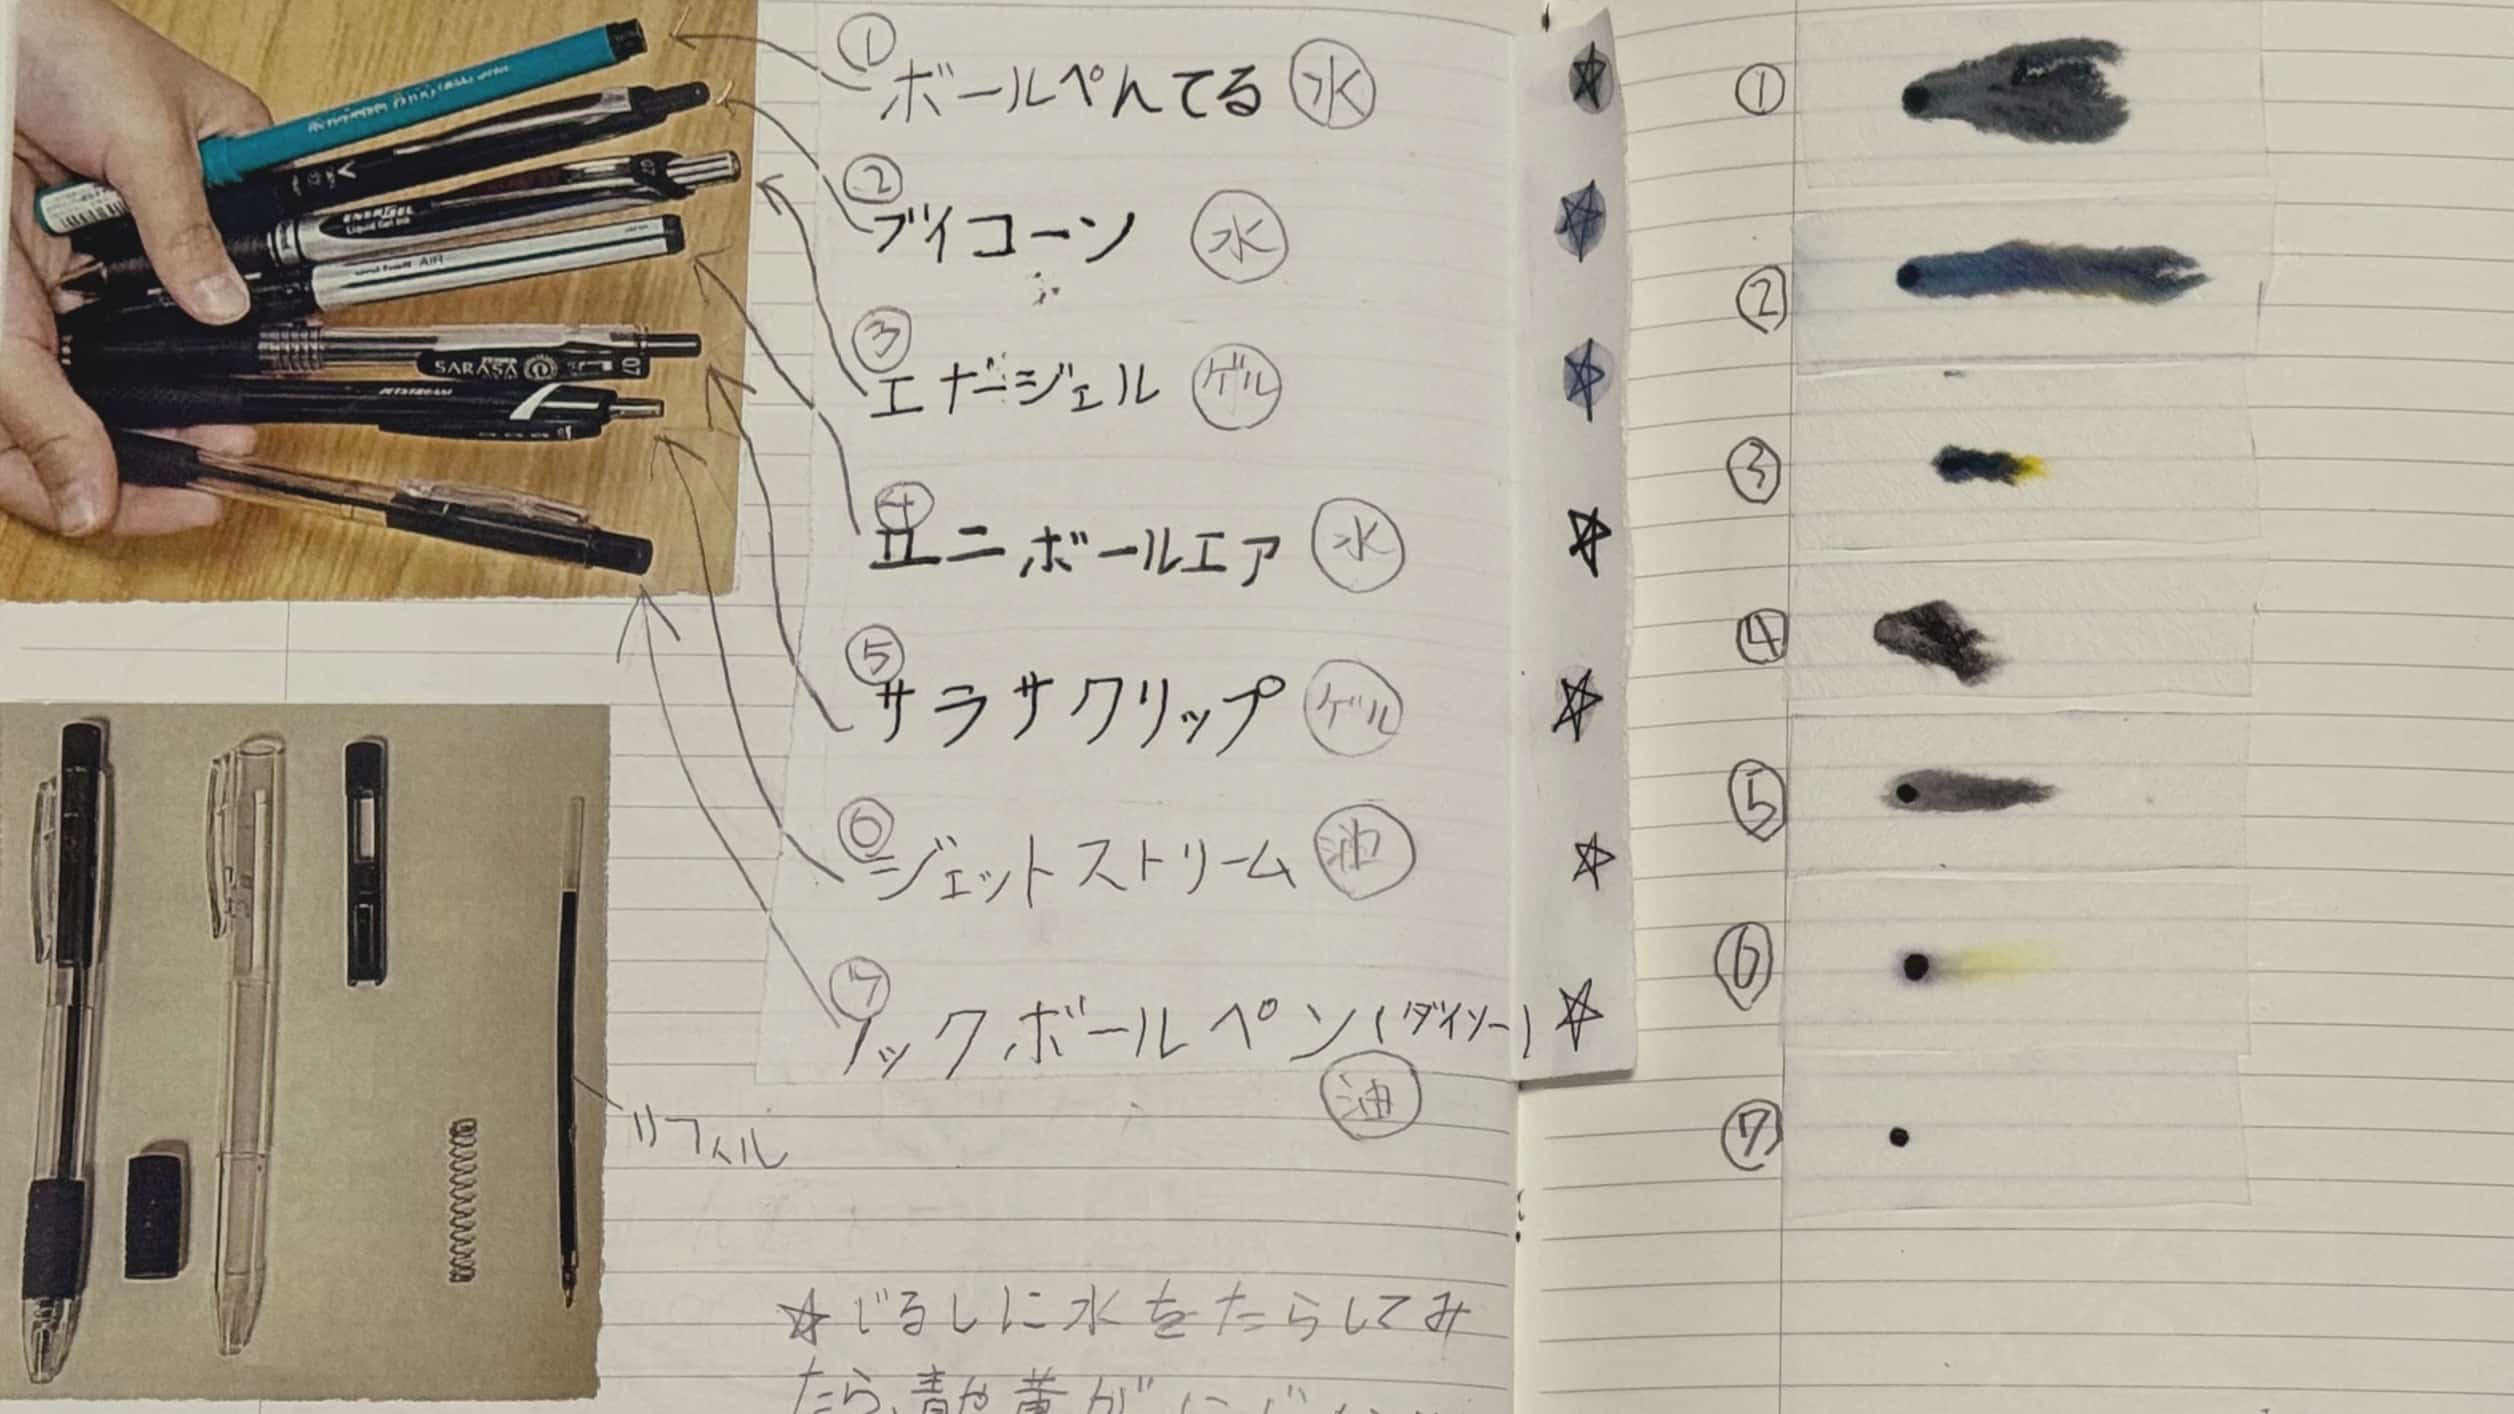 ① ボールぺんてる 水 ☆
② ブイコーン 水 ☆
③ エナージェル ゲル ☆
④ ユニボールエア 水 ☆
⑤ サラサクリップ ゲル ☆
⑥ ジェットストリーム 油 ☆
⑦ ノックボールペン(ダイソー) ☆
油
ENERGEL
Liquid Gel Ink
AIR
SARASA
07
JETSTREAM
リフィル
☆じるしに水をたらしてみ
たら、青や黄が
①
②
③
④
⑤
⑥
⑦